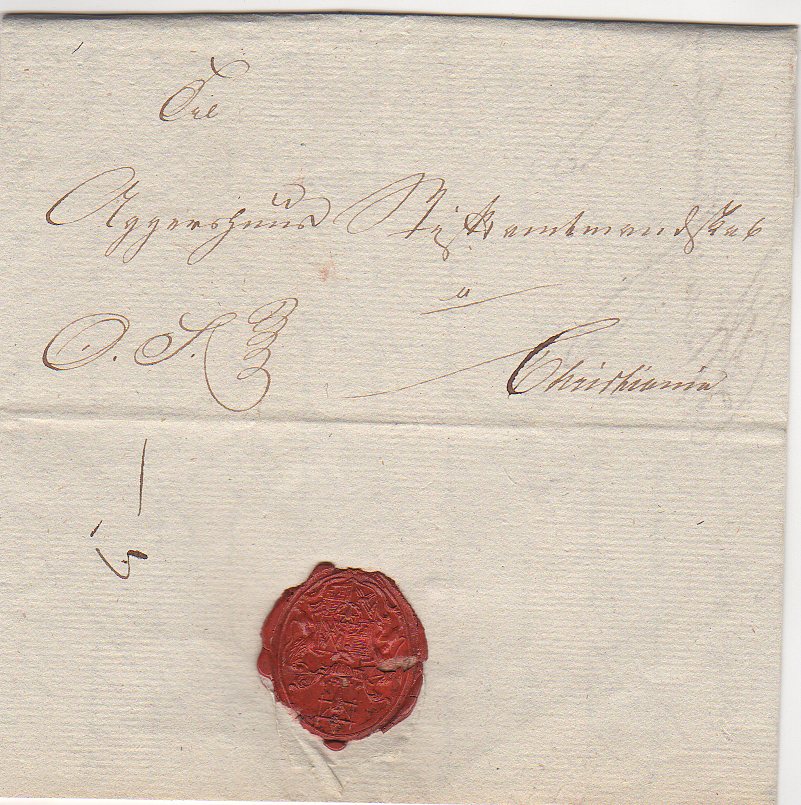 Til
Aggershuus Stiftamtmandskab
a
O. S.
Christiania